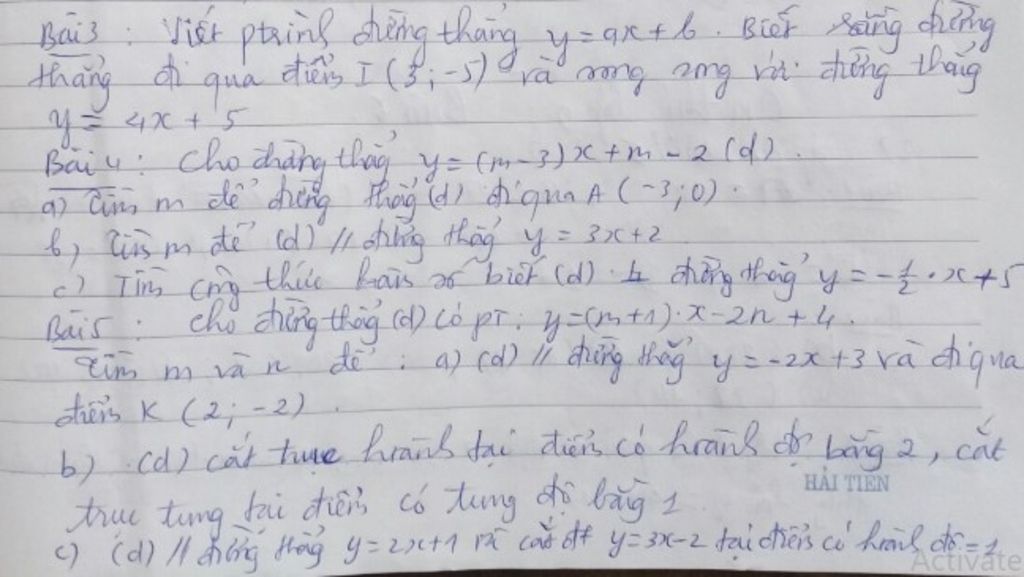 Bài 3 : Viết ptrình đường thẳng y = ax + b . Biết rằng đường
thẳng đi qua điểm I (3 ; -5) và song song với đường thẳng
y = 4x + 5
Bài 4 : Cho đường thẳng y = (m - 3)x + m - 2 (d) .
a) Tìm m để đường thẳng (d) đi qua A (-3 ; 0) .
b) Tìm m để (d) // đường thẳng y = 3x + 2
c) Tìm công thức hàm số biết (d) ⊥ đường thẳng y = -1/2 . x + 5
Bài 5 : Cho đường thẳng (d) có pt : y = (m + 1) . x - 2n + 4 .
Tìm m và n để : a) (d) // đường thẳng y = -2x + 3 và đi qua
điểm K (2 ; -2) .
b) (d) cắt trục hoành tại điểm có hoành độ bằng 2 , cắt
HẢI TIẾN
trục tung tại điểm có tung độ bằng 1
c) (d) // đường thẳng y = 2x + 1 và cắt đt y = 3x - 2 tại điểm có hoành độ = 1
Activate